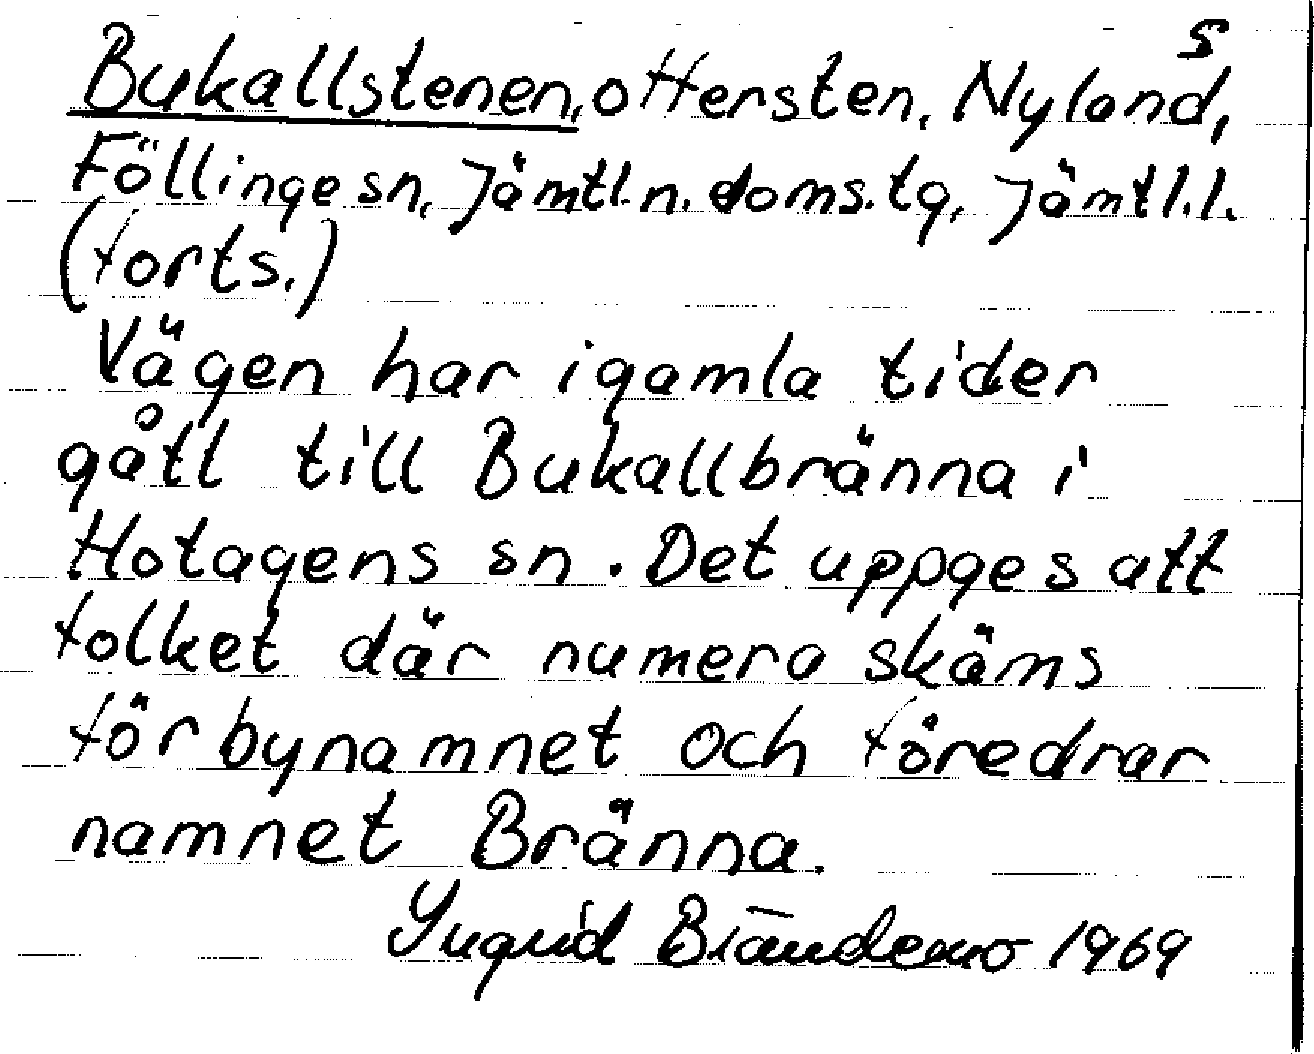 Bukallstenen, offersten, Nylands,
Föllinge sn, Jämtl. n. doms. tg, Jämtl. l.
(forts.)
Vägen har i gamla tider
gått till Bukallbränna i
Hotagens sn. Det uppges att
folket där numera skäms
för bynamnet och föredrar
namnet Bränna.
Ingrid Brändemo 1969